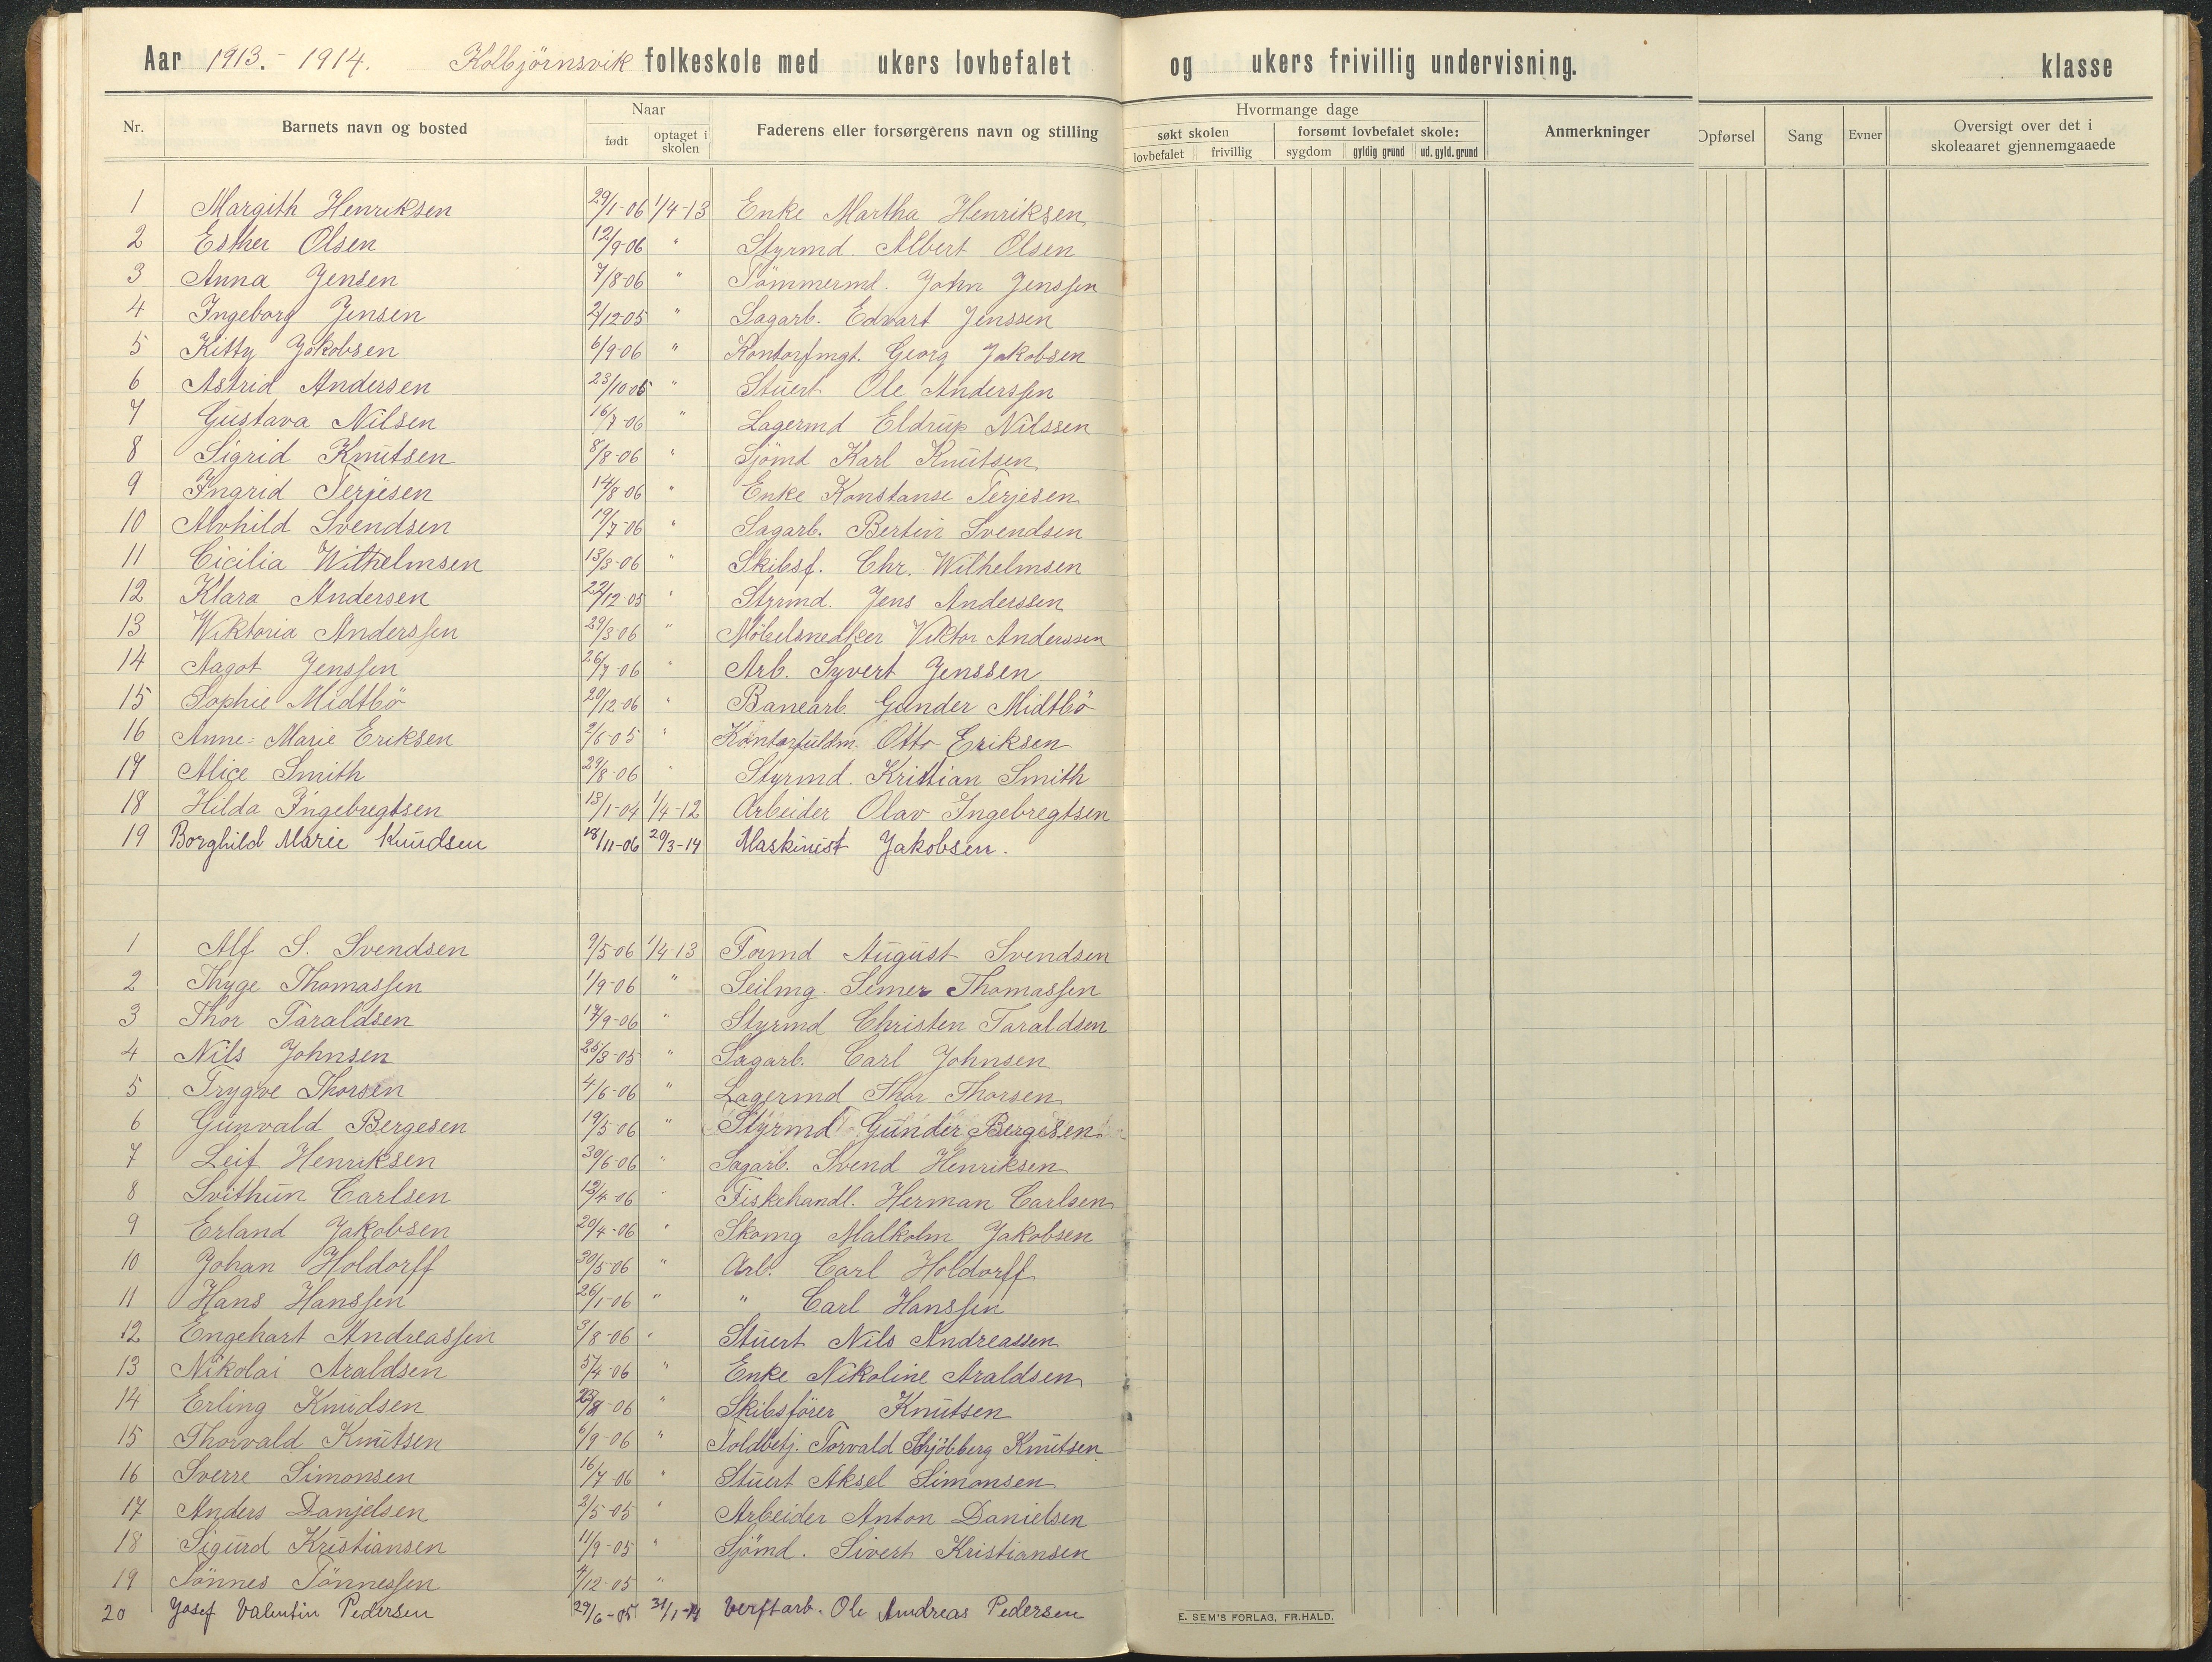 Aar 1913.-1914. Kolbjörnsvik folkeskole med ukers lovbefalet og ukers frivillig undervisning. klasse
Nr. Barnets navn og bosted Naar Faderens eller forsørgerens navn og stilling Hvormange dage Anmerkninger Opførsel Sang Evner Oversigt over det i skoleaaret gjennemgaaede
født optaget i skolen søkt skolen forsømt lovbefalet skole:
lovbefalet frivillig sygdom gyldig grund ud. gyld. grund
1 Margith Henriksen 29/1-06 1/4-13 Enke Martha Henriksen
2 Esther Olsen 12/9-06 " Styrmd. Albert Olsen
3 Anna Jensen 7/8-06 " Tömmermd. John Jenssen
4 Ingeborg Jensen 2/12-05 " Sagarb. Edvart Jenssen
5 Kitty Jakobsen 6/9-06 " Kontorfmgt. Georg Jakobsen
6 Astrid Andersen 23/10-05 " Stuert Ole Anderssen
7 Gustava Nilsen 16/7-06 " Lagermd Eldrup Nilssen
8 Sigrid Knutsen 8/8-06 " Sjömd Karl Knutsen
9 Ingrid Terjesen 14/8-06 " Enke Konstanse Terjesen
10 Alvhild Svendsen 19/7-06 " Sagarb. Bertin Svendsen
11 Cicilia Wilhelmsen 13/3-06 " Skibsf. Chr. Wilhelmsen
12 Klara Andersen 22/12-05 " Styrmd. Jens Anderssen
13 Wiktoria Anderssen 29/3-06 " Möbelsnedker Viktor Anderssen
14 Aagot Jenssen 26/7-06 " Arb. Syvert Jenssen
15 Sophie Midtbö 20/12-06 " Banearb. Gunder Midtbö
16 Anne-Marie Eriksen 2/6-05 " Kontorfuldm. Otto Eriksen
17 Alice Smith 29/8-06 " Styrmd. Kristian Smith
18 Hilda Ingebregtsen 13/1-04 1/4-12 Arbeider Olav Ingebregtsen
19 Borghild Marie Knudsen 18/11-06 20/3-14 Maskinist Jakobsen.
1 Alf S. Svendsen 9/5-06 1/4-13 Formd August Svendsen
2 Thyge Thomassen 1/9-06 " Seilmg. Semer Thomassen
3 Thor Taraldsen 17/9-06 " Styrmd Christen Taraldsen
4 Nils Johnsen 25/3-05 " Sagarb. Carl Johnsen
5 Trygve Thorsen 4/6-06 " Lagermd Thor Thorsen
6 Gunvald Bergesen 19/5-06 " Styrmd Gunder Bergesen
7 Leif Henriksen 30/6-06 " Sagarb. Svend Henriksen
8 Svithun Carlsen 12/4-06 " Fiskehandl. Herman Carlsen
9 Erland Jakobsen 20/4-06 " Skomg Malkolm Jakobsen
10 Johan Holdorff 30/5-06 " Arb. Carl Holdorff
11 Hans Hanssen 26/1-06 " " Carl Hanssen
12 Engehart Andreassen 3/8-06 " Stuert Nils Andreassen
13 Nikolai Araldsen 5/4-06 " Enke Nikoline Araldsen
14 Erling Knudsen 23/8-06 " Skibsförer Knutsen
15 Thorvald Knutsen 6/9-06 " Toldbetj. Torvald Knutsen
16 Sverre Simonsen 16/7-06 " Stuert Aksel Simonsen
17 Anders Danjelsen 2/5-05 " Arbeider Anton Danielsen
18 Sigurd Kristiansen 11/9-05 " Sjömd. Sivert Kristiansen
19 Tönnes Tönnessen 4/12-05 "
20 Josef Valentin Pedersen 29/6-05 31/1-14 Verftarb. Ole Andreas Pedersen
E. SEM'S FORLAG, FR.HALD.